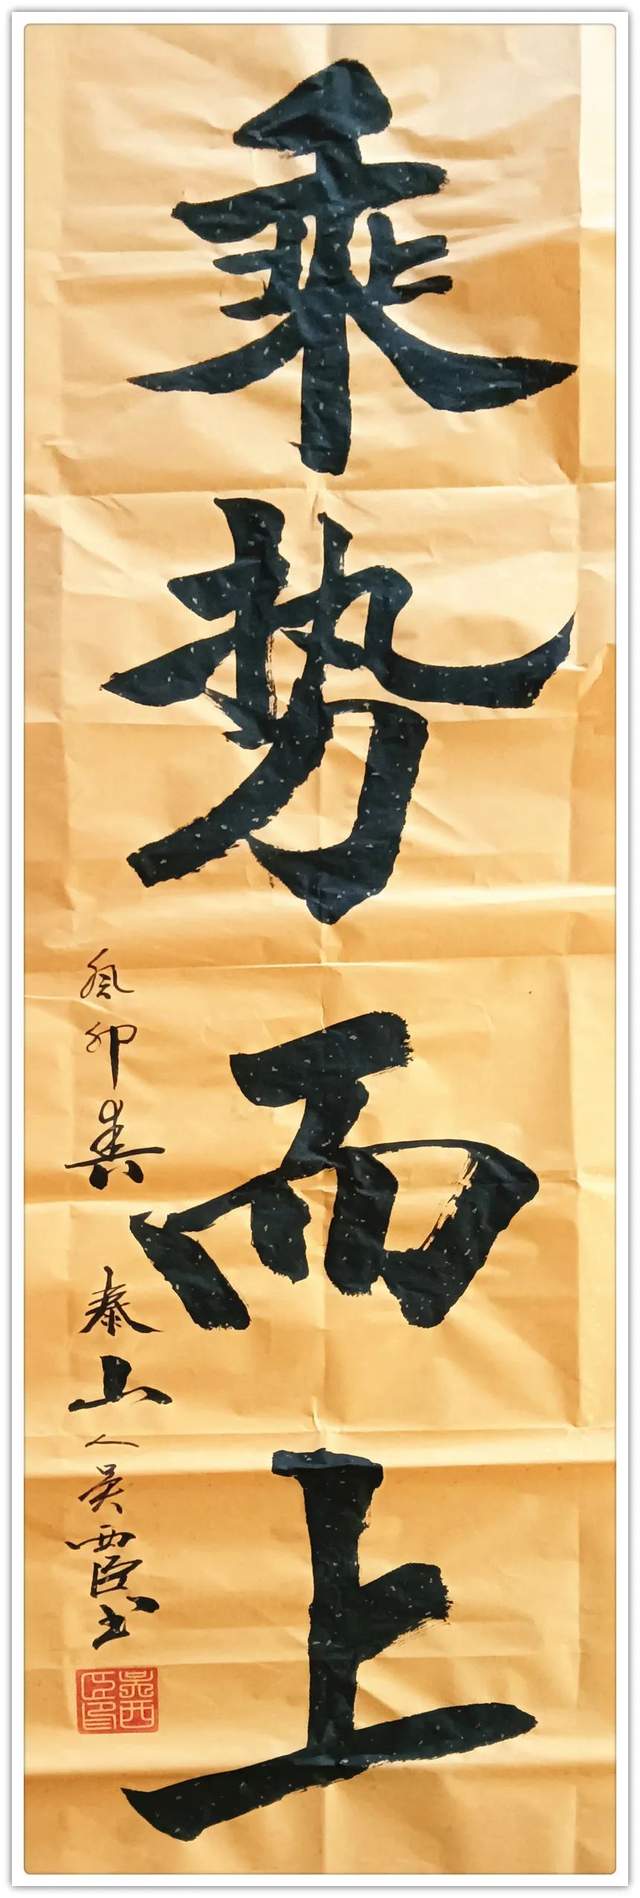 乘势而上
癸卯春 泰山人吴西臣书
吴西臣印